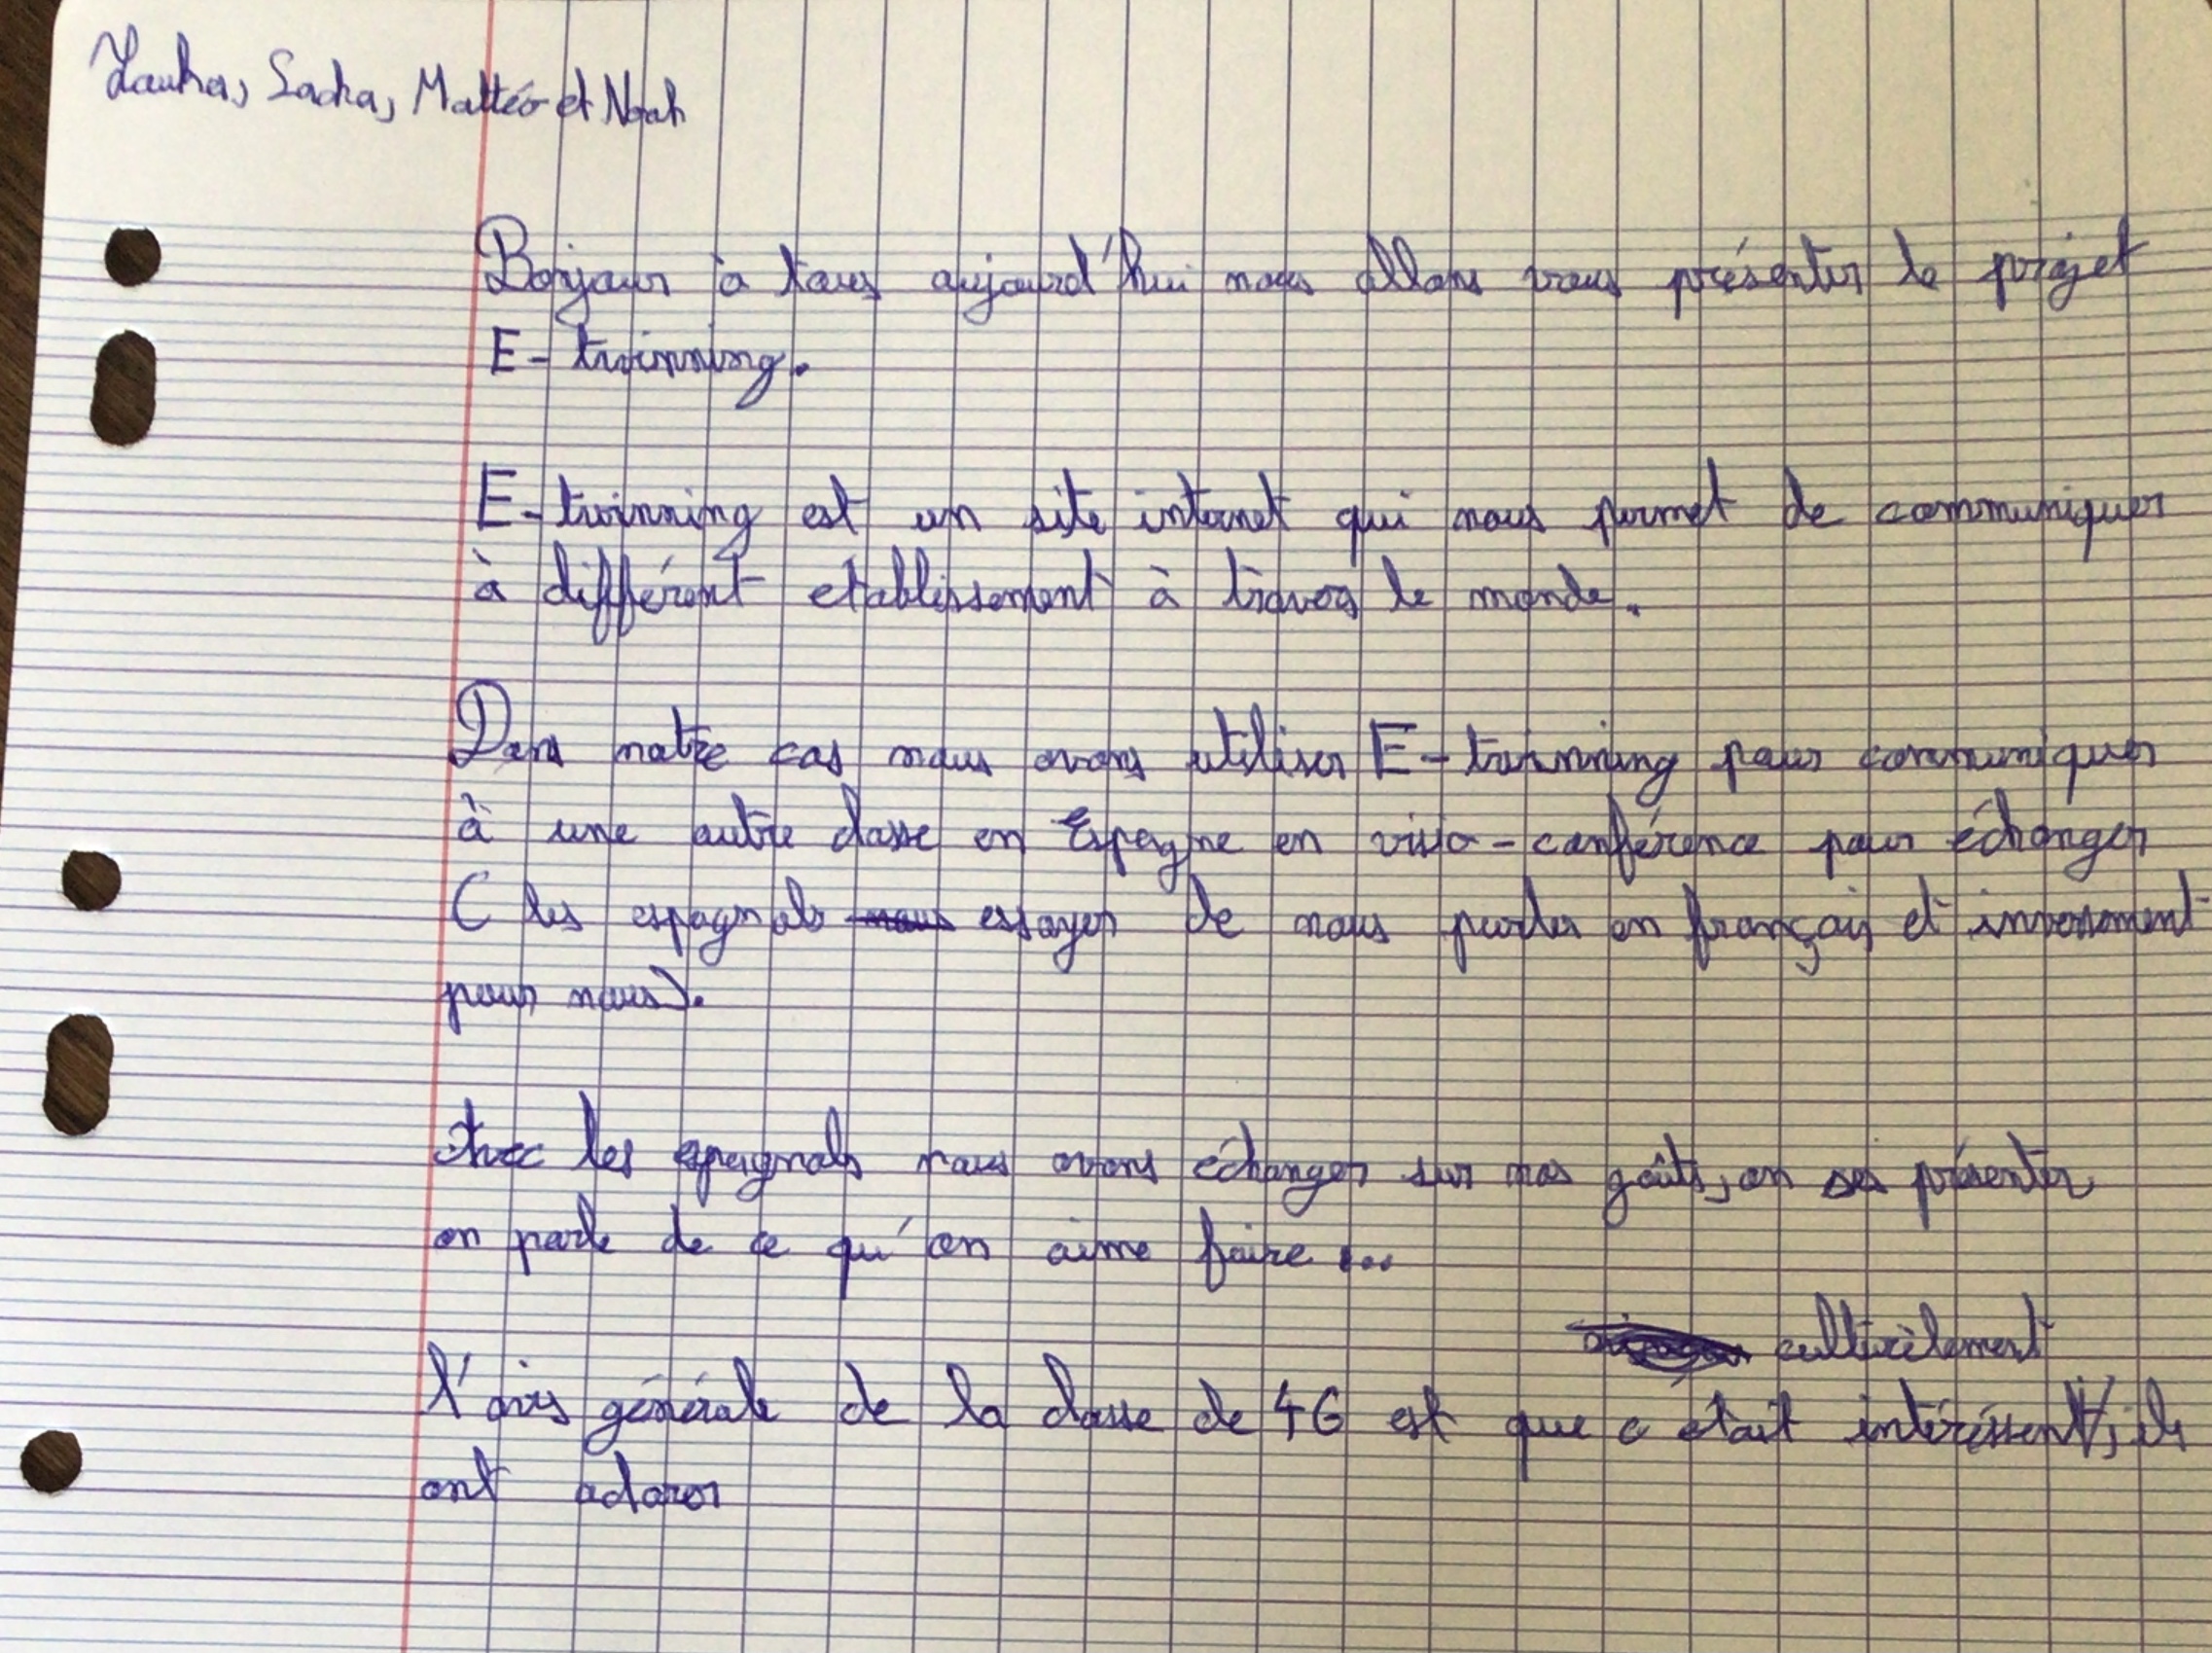 Sacha, Mattéo et Noah
Bonjour à tous aujourd'hui nous allons vous présenter le projet
E-twinning.
E-twinning est un site internet qui nous permet de communiquer
à différent etablissement à travers le monde.
Dans notre cas nous avons utiliser E-twinning pour communiquer
à une autre classe en Espagne en visio-conférence pour échanger
( les espagnols essayer de nous parler en français et inversement
pour nous).
Avec les espagnols nous avons échanger sur nos goûts, on ses présenter
on parle de ce qu'on aime faire ...
culturèlement
L'avis générale de la classe de 4G est que c était intéréssent, ils
ont adorer